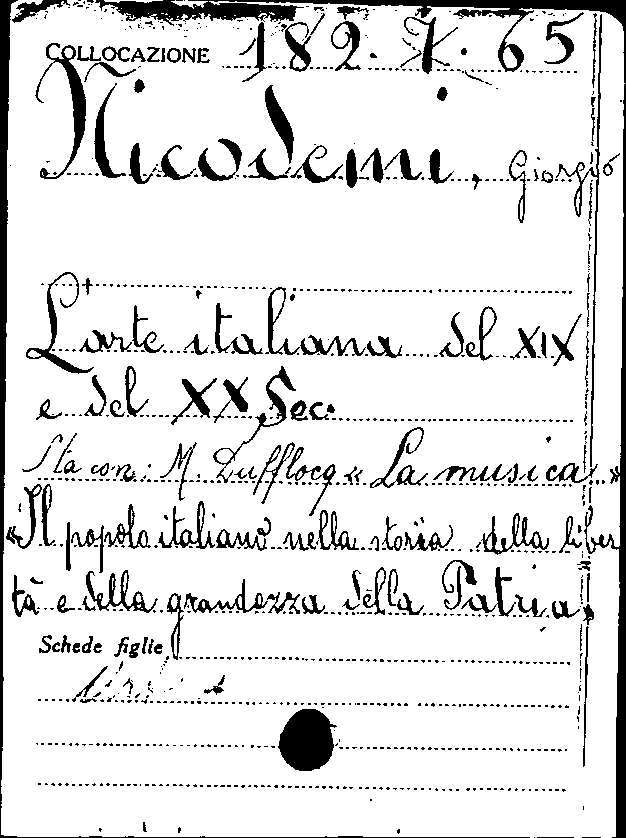 COLLOCAZIONE 182. 7. 65
Nicodemi, Giorgio
L'arte italiana del XIX
e del XX Sec.
Sta con: M. Dufflocq « La musica »
« Il popolo italiano nella storia della liber
tà e della grandezza della Patria »
Schede figlie